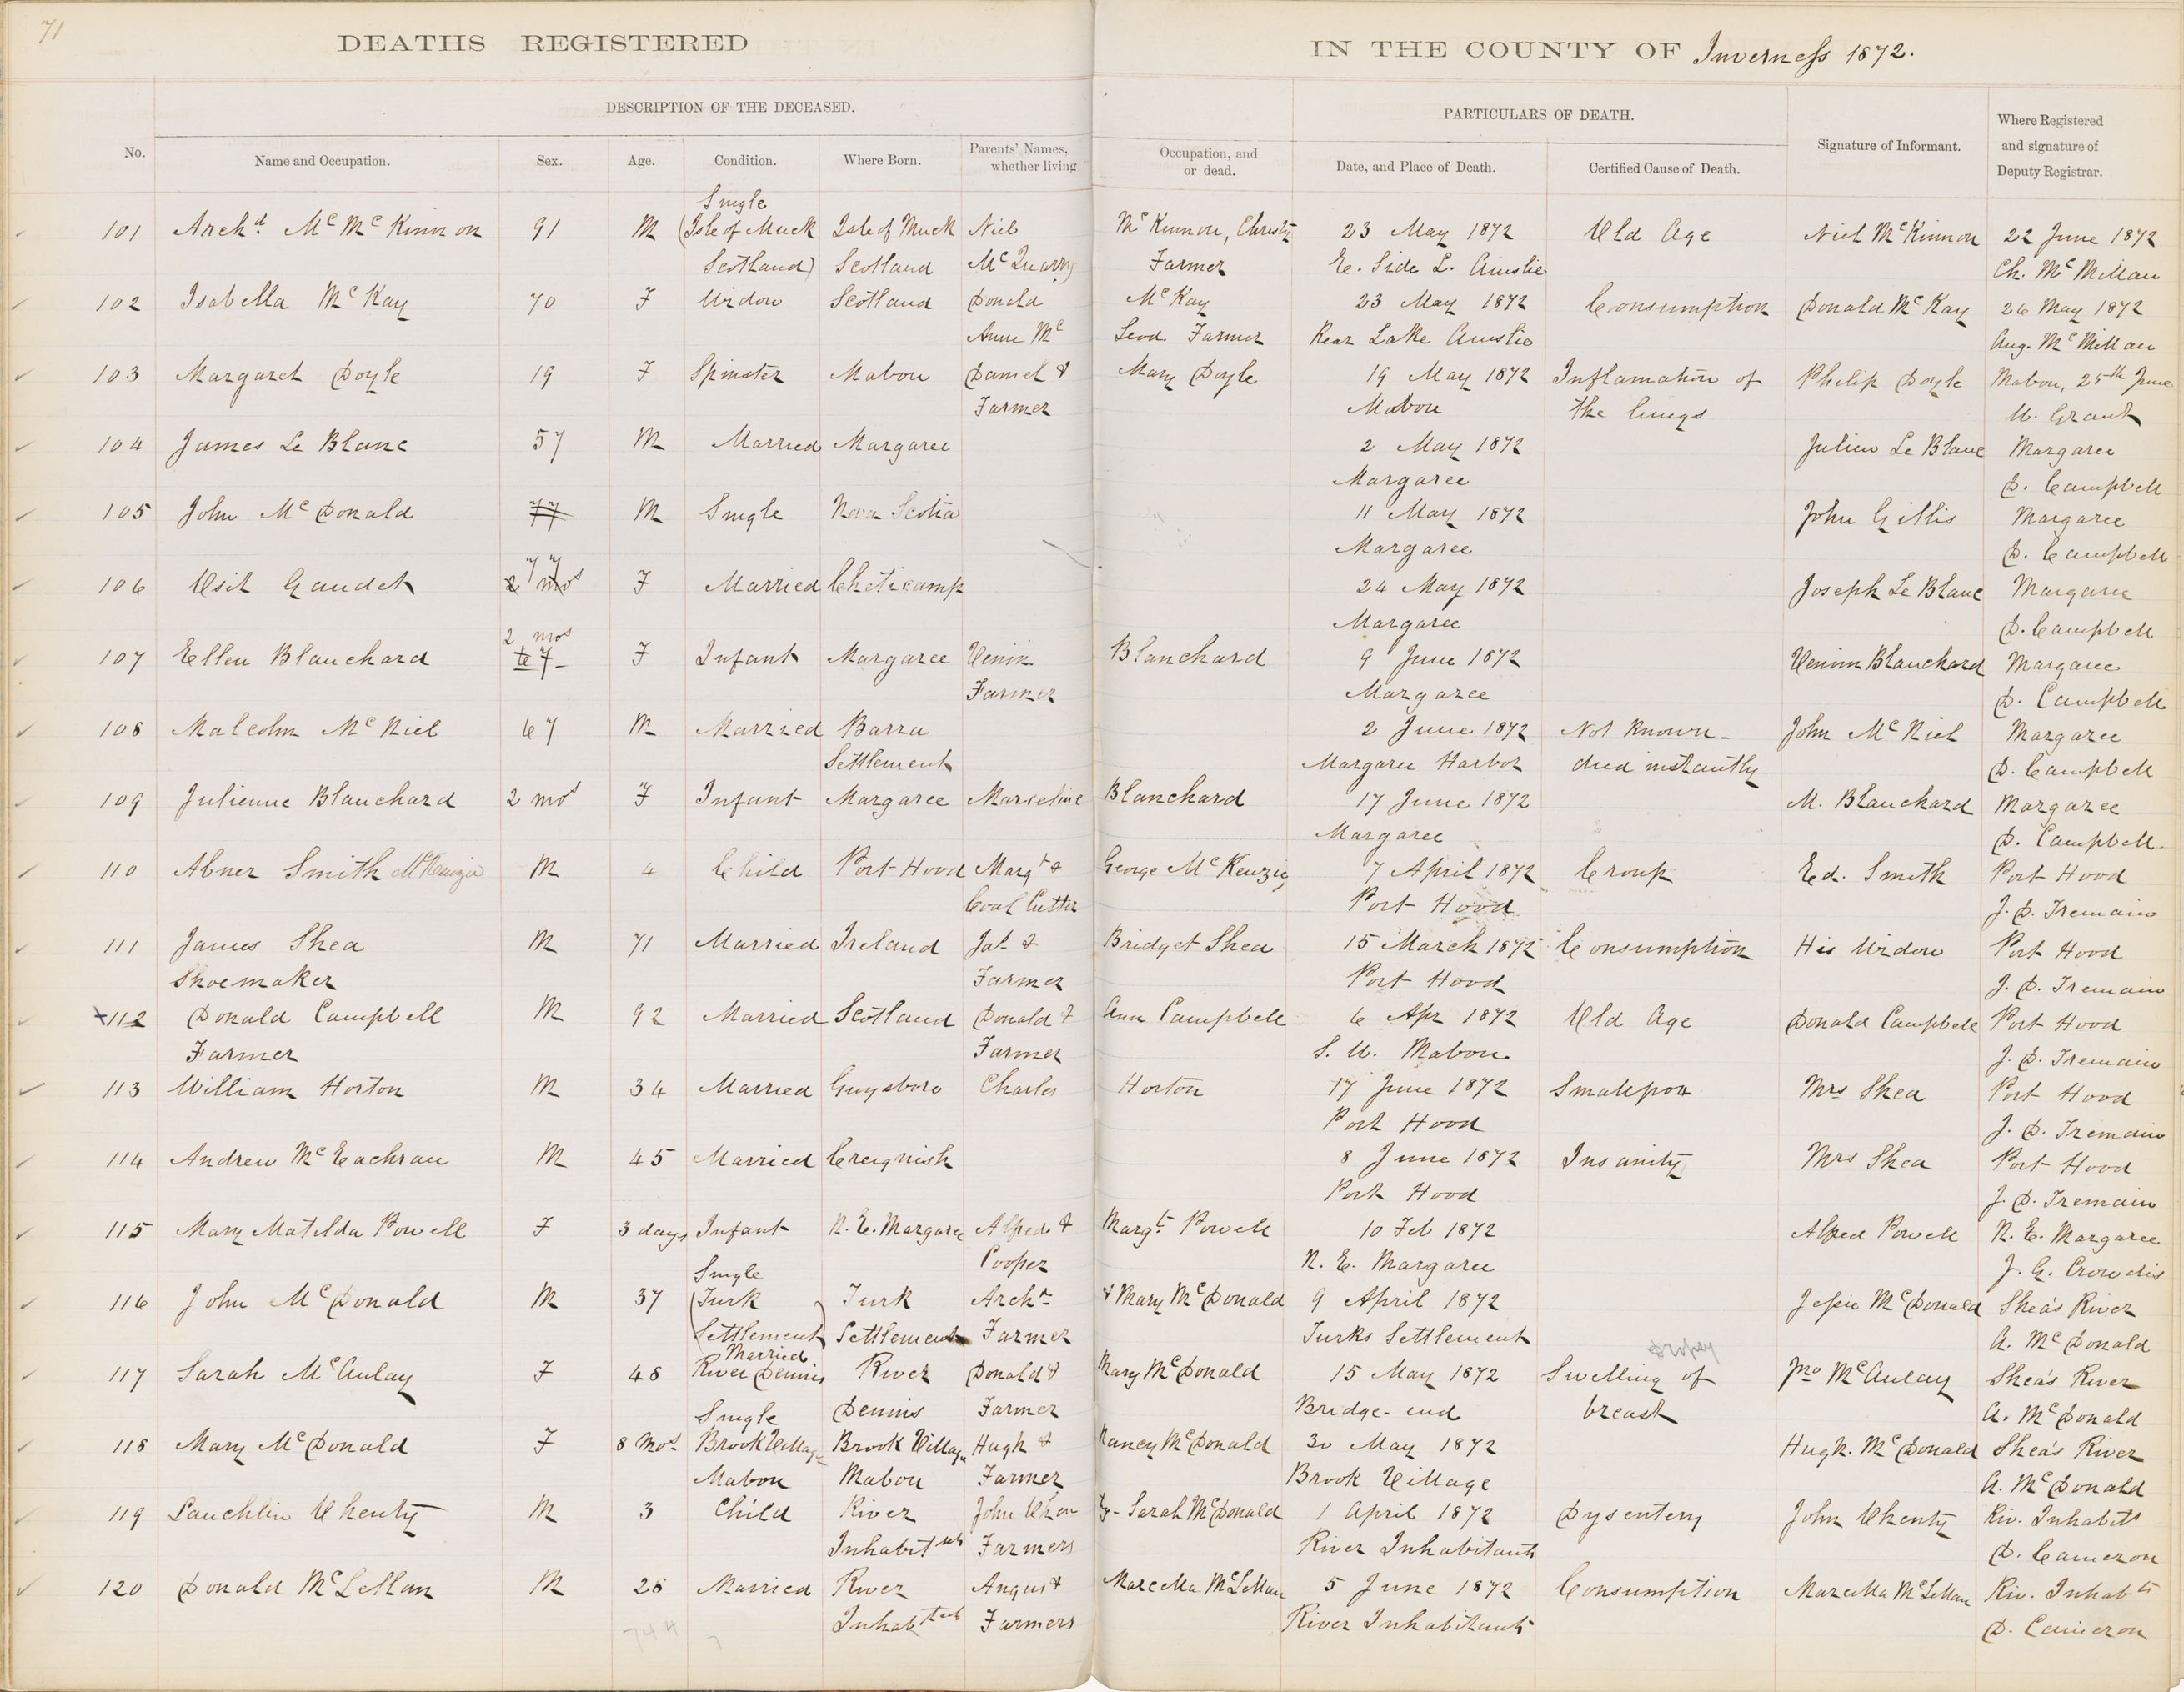 71
DEATHS REGISTERED IN THE COUNTY OF Inverness 1872.
DESCRIPTION OF THE DECEASED. PARTICULARS OF DEATH.
No. Name and Occupation. Sex. Age. Condition. Where Born. Parents' Names, whether living Occupation, and or dead. Date, and Place of Death. Certified Cause of Death. Signature of Informant. Where Registered and signature of Deputy Registrar.
Single
101 Archd. Mc McKinnon 91 M (Isle of Muck Isle of Muck Niel McKinnon, Christy 23 May 1872 Old Age Niel McKinnon 22 June 1872
Scotland) Scotland McQuarry Farmer E. Side L. Ainslie Ch. McMillan
102 Isabella McKay 70 F Widow Scotland Donald McKay 23 May 1872 Consumption Donald McKay 26 May 1872
Anne Mc Leod. Farmer Rear Lake Ainslie Aug. McMillan
103 Margaret Doyle 19 F Spinster Mabou Daniel & Mary Doyle 19 May 1872 Inflamation of Philip Doyle Mabou, 25th June
Farmer Mabou the lungs W. Grant
104 James Le Blanc 57 M Married Margaree 2 May 1872 Julien Le Blanc Margaree
Margaree D. Campbell
105 John McDonald 77 M Single Nova Scotia 11 May 1872 John Gillis Margaree
Margaree D. Campbell
77
106 Osit Gaudet 2 mos F Married Cheticamp 24 May 1872 Joseph Le Blanc Margaree
Margaree D. Campbell
2 mos
107 Ellen Blanchard 67 F Infant Margaree Venin Blanchard 9 June 1872 Veninn Blanchard Margaree
Farmer Margaree D. Campbell
108 Malcolm McNiel 67 M Married Barra 2 June 1872 Not Known - John McNiel Margaree
Settlement Margaree Harbor died instantly D. Campbell
109 Julienne Blanchard 2 mos F Infant Margaree Marceline Blanchard 17 June 1872 M. Blanchard Margaree
Margaree D. Campbell.
110 Abner Smith McKenzie M 4 Child Port Hood Margt & George McKenzie, 7 April 1872 Croup Ed. Smith Port Hood
Coal Cutter Port Hood J. D. Tremain
111 James Shea M 71 Married Ireland Jas & Bridget Shea 15 March 1872 Consumption His Widow Port Hood
Shoemaker Farmer Port Hood J. D. Tremain
x112 Donald Campbell M 92 Married Scotland Donald & Ann Campbell 6 Apr 1872 Old Age Donald Campbell Port Hood
Farmer Farmer S. W. Mabou J. D. Tremain
113 William Horton M 34 Married Guysboro Charles Horton 17 June 1872 Smallpox Mrs Shea Port Hood
Port Hood J. D. Tremain
114 Andrew McEachran M 45 Married Creignish 8 June 1872 Insanity Mrs Shea Port Hood
Port Hood J. D. Tremain
115 Mary Matilda Powell F 3 days Infant N. E. Margaree Alfred & Margt. Powell 10 Feb 1872 Alfred Powell N. E. Margaree
Cooper N. E. Margaree J. G. Crowdis
Single
116 John McDonald M 37 (Turk Turk Archd & Mary McDonald 9 April 1872 Jessie McDonald Shea's River
Settlement) Settlement Farmer Turks Settlement A. McDonald
Married Dropsy
117 Sarah McAulay F 48 River Dennis River Donald & Mary McDonald 15 May 1872 Swelling of Jno McAulay Shea's River
Dennis Farmer Bridge-end breast A. McDonald
Single
118 Mary McDonald F 8 Mos. Brook Village Brook Village Hugh & Nancy McDonald 30 May 1872 Hugh. McDonald Shea's River
Mabou Mabou Farmer Brook Village A. McDonald
119 Lauchlin Whenty M 3 Child River John When ty - Sarah McDonald 1 April 1872 Dysentery John Whenty Riv. Inhabits
Inhabitants Farmers River Inhabitants D. Cameron
120 Donald McLellan M 28 Married River Angus & Marcella McLellan 5 June 1872 Consumption Marcella McLellan Riv. Inhabts
Inhabitants Farmers River Inhabitants D. Cameron
744 7